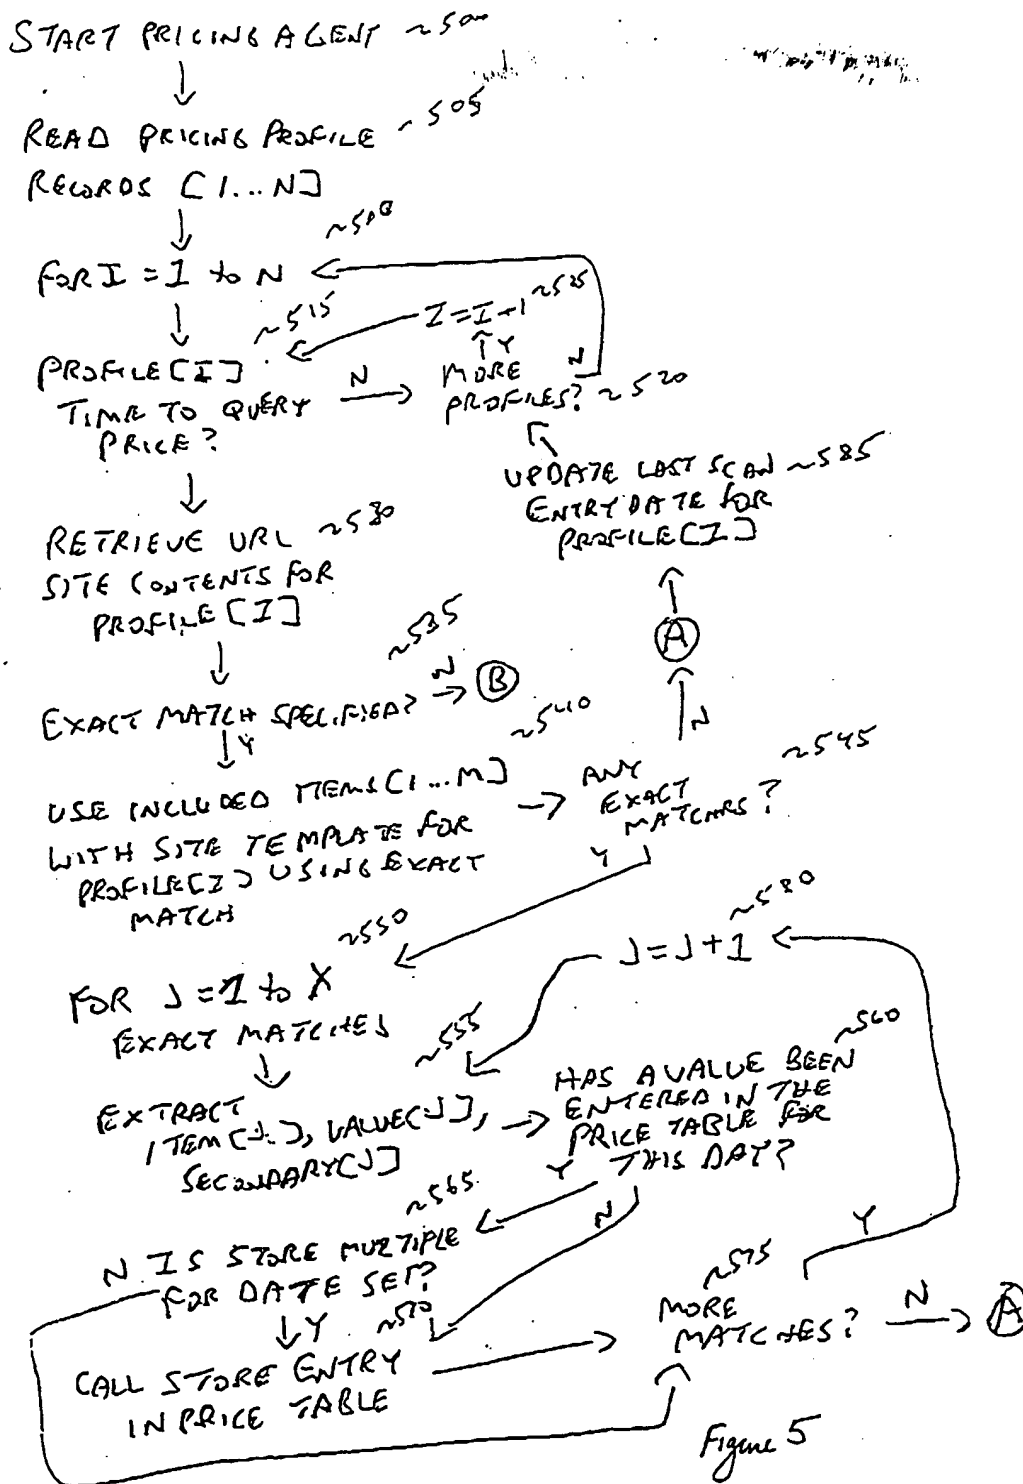 START PRICING AGENT ~500
READ PRICING PROFILE ~505
RECORDS [1...N]
FOR I = 1 to N ~510
PROFILE[I] ~515
TIME TO QUERY
PRICE?
N
I=I+1 ~525
Y
MORE N
PROFILES? ~520
UPDATE LAST SCAN ~585
ENTRY DATE FOR
PROFILE[I]
RETRIEVE URL ~530
SITE CONTENTS FOR
PROFILE[I]
A
N
EXACT MATCH SPECIFIED? ~535
N B
Y
USE INCLUDED ITEMS[1...M] ~540
WITH SITE TEMPLATE FOR
PROFILE[I] USING EXACT
MATCH
ANY ~545
EXACT
MATCHES?
Y
FOR J = 1 to X ~550
EXACT MATCHES
J=J+1 ~580
EXTRACT ~555
ITEM[J], VALUE[J],
SECONDARY[J]
HAS A VALUE BEEN ~560
ENTERED IN THE
PRICE TABLE FOR
THIS DAY?
Y
N
N IS STORE MULTIPLE ~565
FOR DATE SET?
Y
CALL STORE ENTRY ~570
IN PRICE TABLE
MORE ~575
MATCHES?
Y
N A
Figure 5